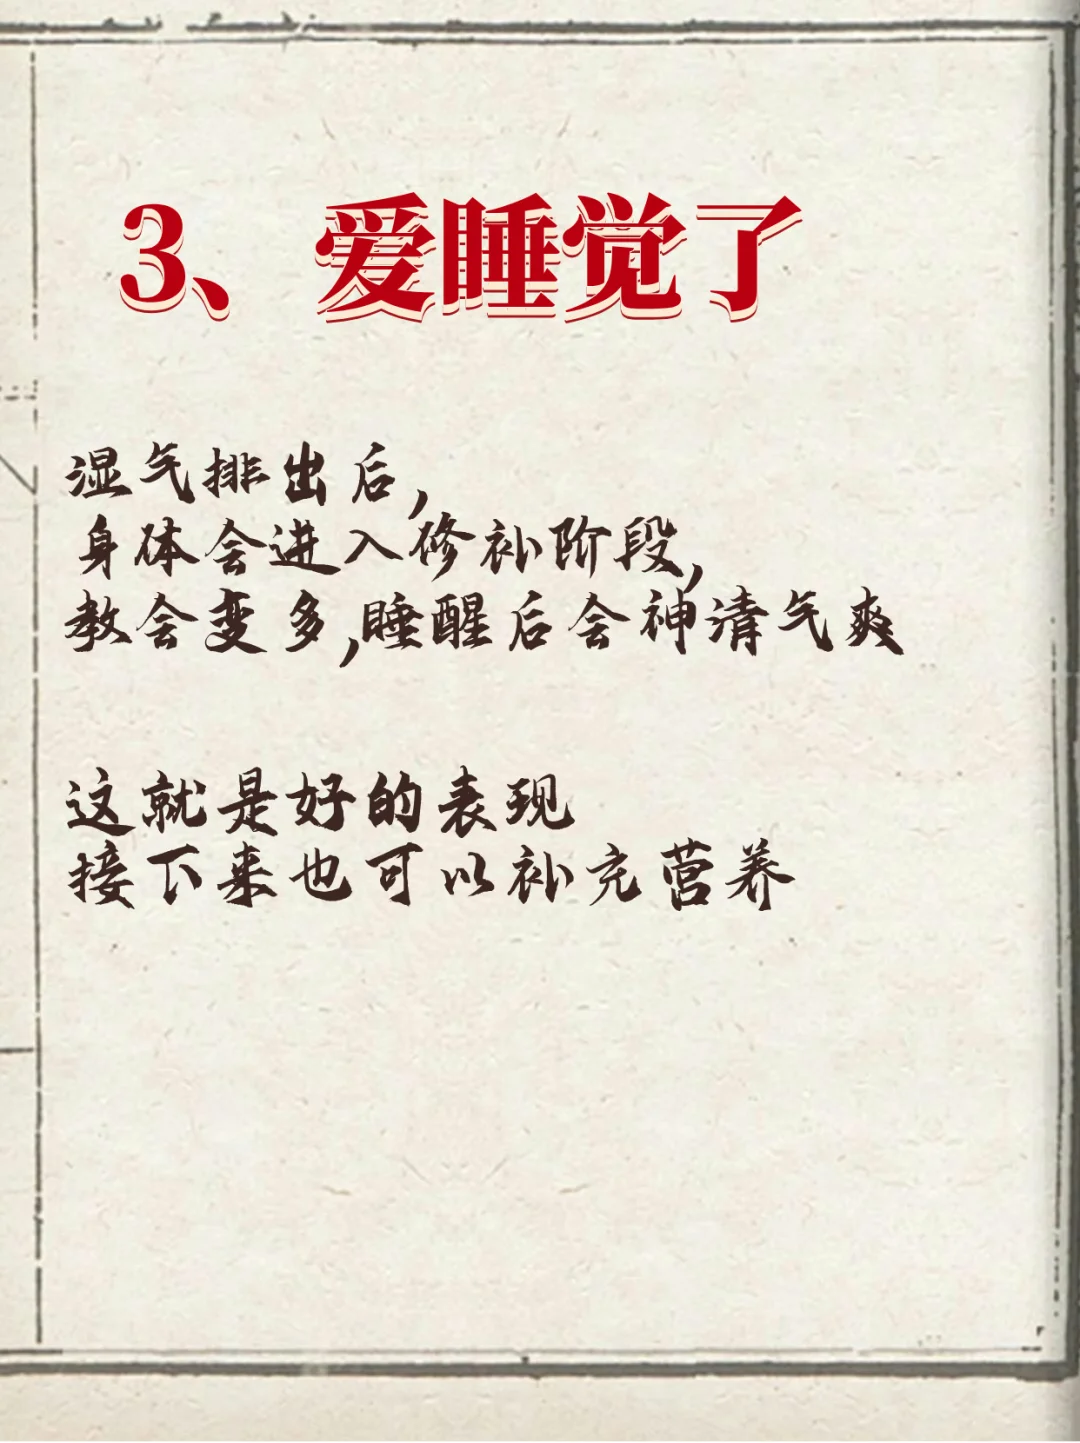 3、爱睡觉了
湿气排出后,
身体会进入修补阶段,
教会变多,睡醒后会神清气爽
这就是好的表现
接下来也可以补充营养